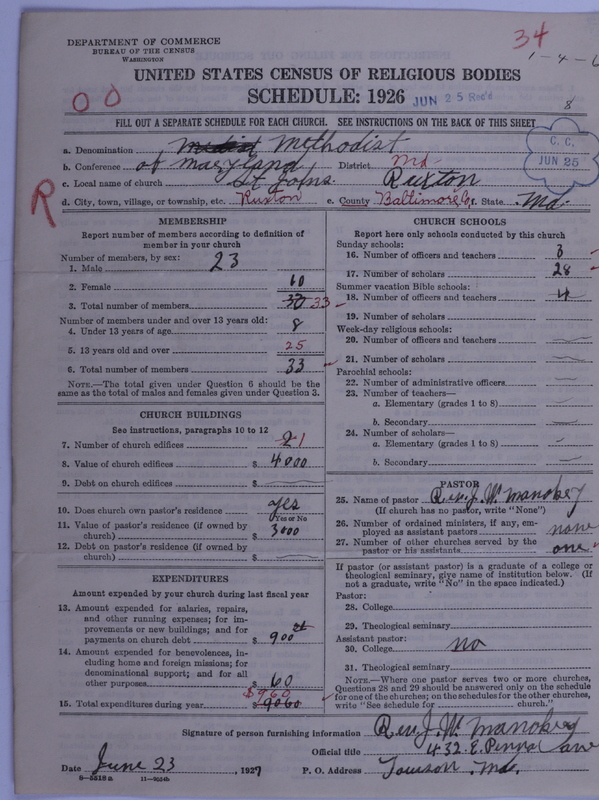 DEPARTMENT OF COMMERCE
BUREAU OF THE CENSUS
WASHINGTON
34
1-4-6
UNITED STATES CENSUS OF RELIGIOUS BODIES
SCHEDULE: 1926
JUN 25 Rec'd
00
8
FILL OUT A SEPARATE SCHEDULE FOR EACH CHURCH. SEE INSTRUCTIONS ON THE BACK OF THIS SHEET
C. C.
JUN 25
a. Denomination Methodist
b. Conference of Maryland District Md.
c. Local name of church St Johns. Ruxton
R
d. City, town, village, or township, etc. Ruxton e. County Baltimore Co. f. State Md.
MEMBERSHIP
Report number of members according to definition of member in your church
Number of members, by sex:
1. Male 23
2. Female 10
3. Total number of members 33 33
Number of members under and over 13 years old:
4. Under 13 years of age 8
5. 13 years old and over 25
6. Total number of members 33
NOTE.—The total given under Question 6 should be the same as the total of males and females given under Question 3.
CHURCH BUILDINGS
See instructions, paragraphs 10 to 12
7. Number of church edifices 2 1
8. Value of church edifices $ 4000
9. Debt on church edifices $
10. Does church own pastor's residence yes
(Yes or No
11. Value of pastor's residence (if owned by church) $ 3000
12. Debt on pastor's residence (if owned by church) $
EXPENDITURES
Amount expended by your church during last fiscal year
13. Amount expended for salaries, repairs, and other running expenses; for improvements or new buildings; and for payments on church debt $ 900
14. Amount expended for benevolences, including home and foreign missions; for denominational support; and for all other purposes $ 60
$960
15. Total expenditures during year $ 9060
CHURCH SCHOOLS
Report here only schools conducted by this church
Sunday schools:
16. Number of officers and teachers 3
17. Number of scholars 28
Summer vacation Bible schools:
18. Number of officers and teachers 4
19. Number of scholars
Week-day religious schools:
20. Number of officers and teachers
21. Number of scholars
Parochial schools:
22. Number of administrative officers
23. Number of teachers—
a. Elementary (grades 1 to 8)
b. Secondary
24. Number of scholars—
a. Elementary (grades 1 to 8)
b. Secondary
PASTOR
25. Name of pastor Rev. J. W. Manokey
(If church has no pastor, write "None")
26. Number of ordained ministers, if any, employed as assistant pastors none
27. Number of other churches served by the pastor or his assistants one
If pastor (or assistant pastor) is a graduate of a college or theological seminary, give name of institution below. (If not a graduate, write "No" in the space indicated.)
Pastor:
28. College
29. Theological seminary
Assistant pastor:
30. College no
31. Theological seminary
NOTE.—Where one pastor serves two or more churches, Questions 28 and 29 should be answered only on the schedule for one of the churches; on schedules for the other churches, write "See schedule for church."
Signature of person furnishing information Rev. J. W. Manokey
Official title 432. E. Penna ave
Date June 23, 1927 P. O. Address Towson, Md.
8-5818a 11-9534b